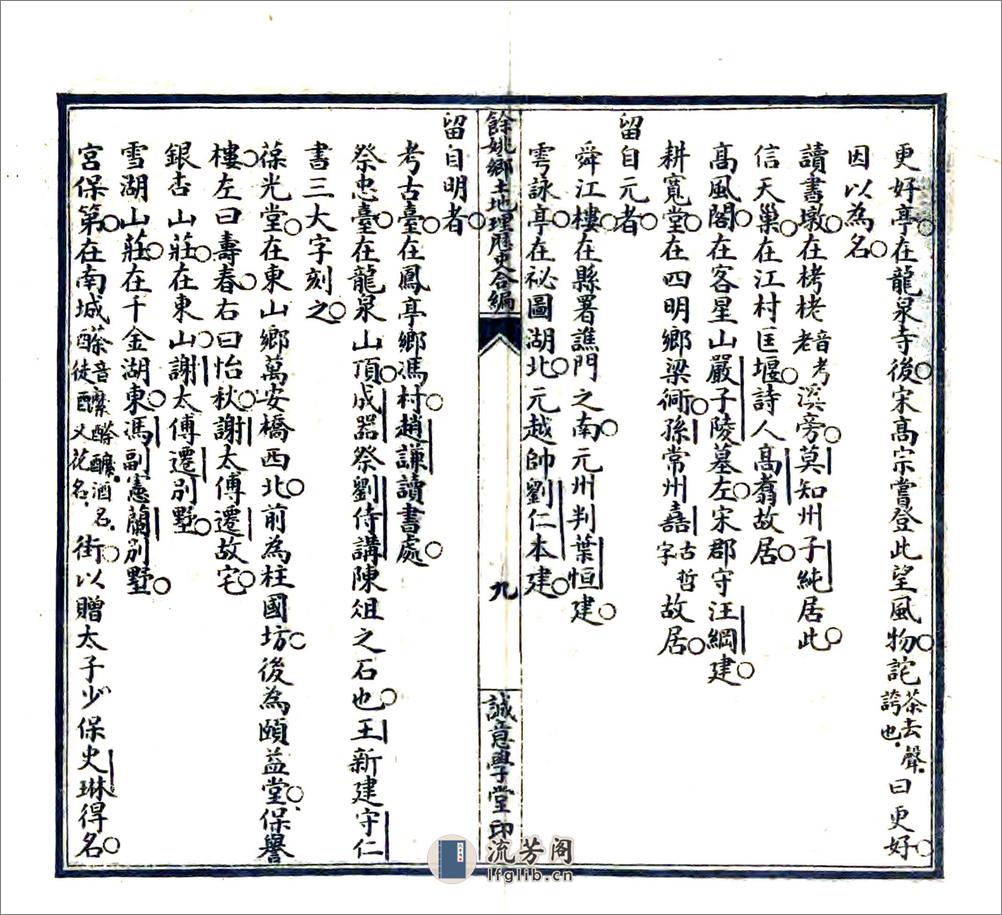 更好亭在龍泉寺後宋高宗嘗登此望風物詫茶去聲誇也曰更好
因以為名
讀書墩在栲栳音考老溪旁莫知州子純居此
信天巢在江村匡堰詩人高翥故居
高風閣在客星山嚴子陵墓左宋郡守汪綱建
耕寬堂在四明鄉梁衕孫常州嚞古哲字故居
留自元者
舜江樓在縣署譙門之南元州判葉恒建
雩詠亭在祕圖湖北元越帥劉仁本建
餘姚鄉土地理歷史合編
九
誠意學堂印
留自明者
考古臺在鳳亭鄉馮村趙謙讀書處
祭忠臺在龍泉山頂成器祭劉侍講陳俎之石也王新建守仁
書三大字刻之
葆光堂在東山鄉萬安橋西北前為柱國坊後為頤益堂保譽
樓左曰壽春右曰怡秋謝太傅遷故宅
銀杏山莊在東山謝太傅遷別墅
雪湖山莊在千金湖東馮副憲蘭別墅
宮保第在南城酴音徒醾酴醾酒名又花名街以贈太子少保史琳得名
流芳阁
lfglib.cn